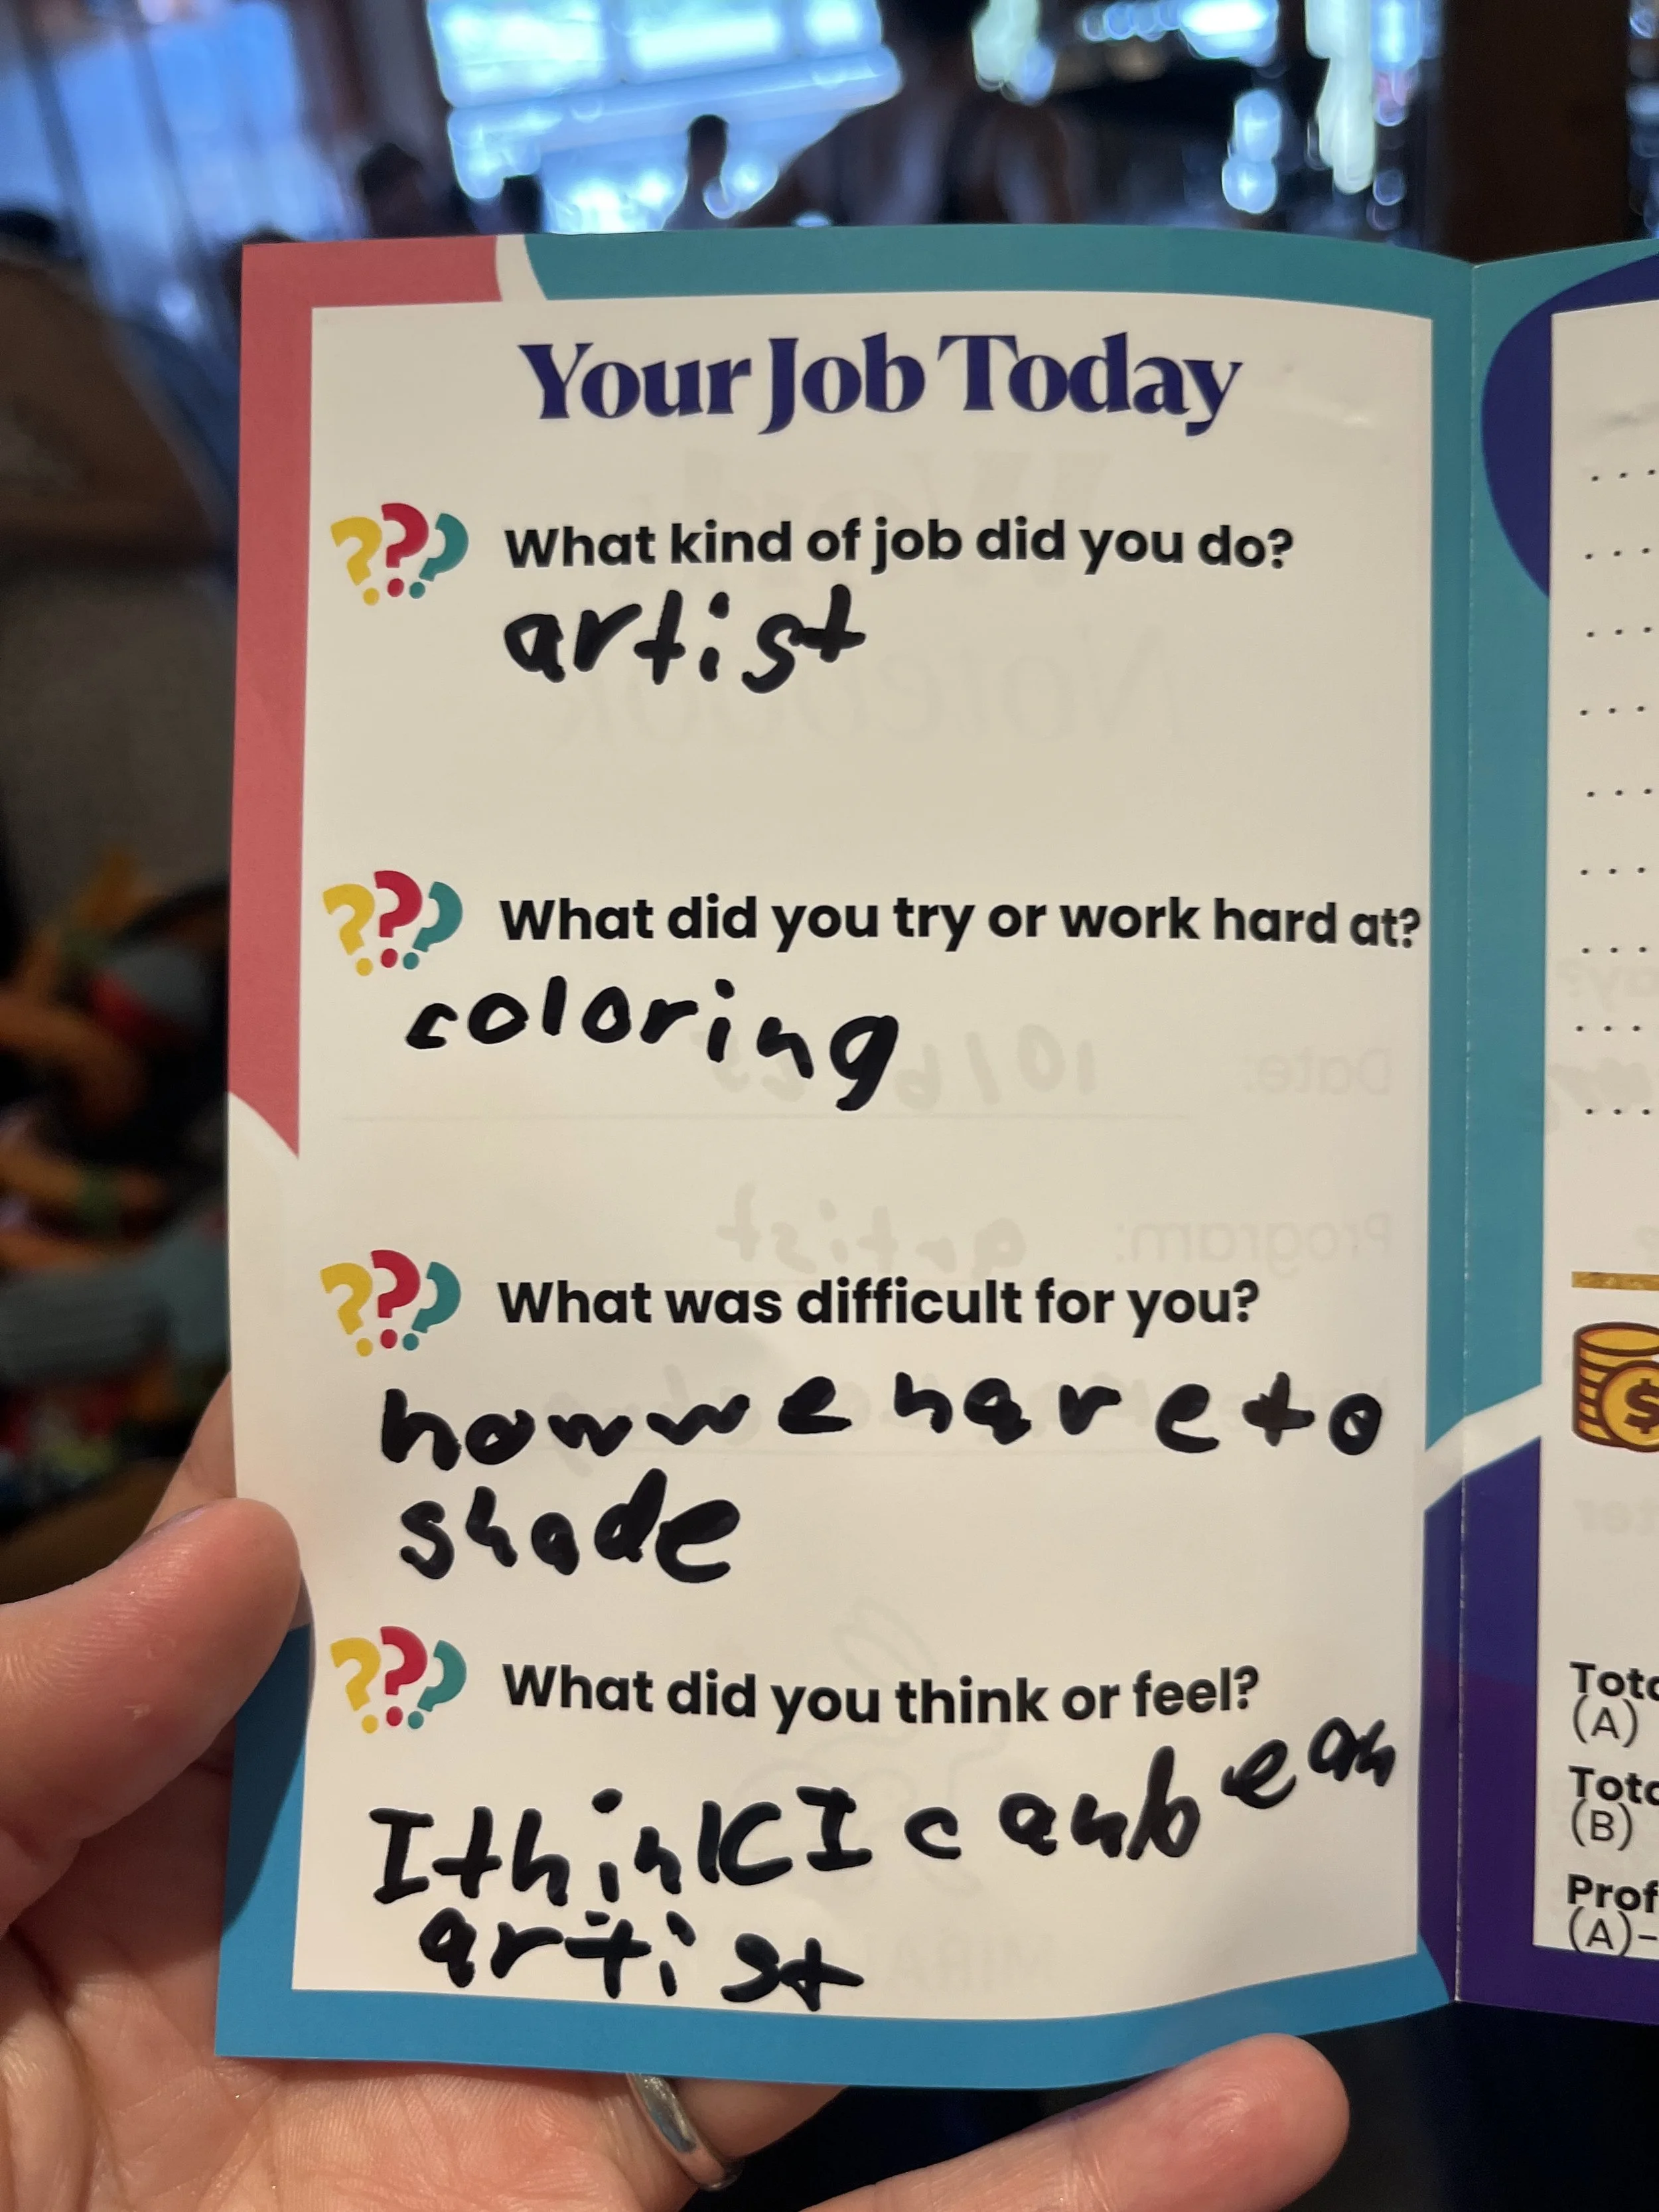 Your Job Today
What kind of job did you do?
artist
What did you try or work hard at?
coloring
What was difficult for you?
how we have to
shade
What did you think or feel?
I think I can be an
artist
$
(A)
(B)
(A)-